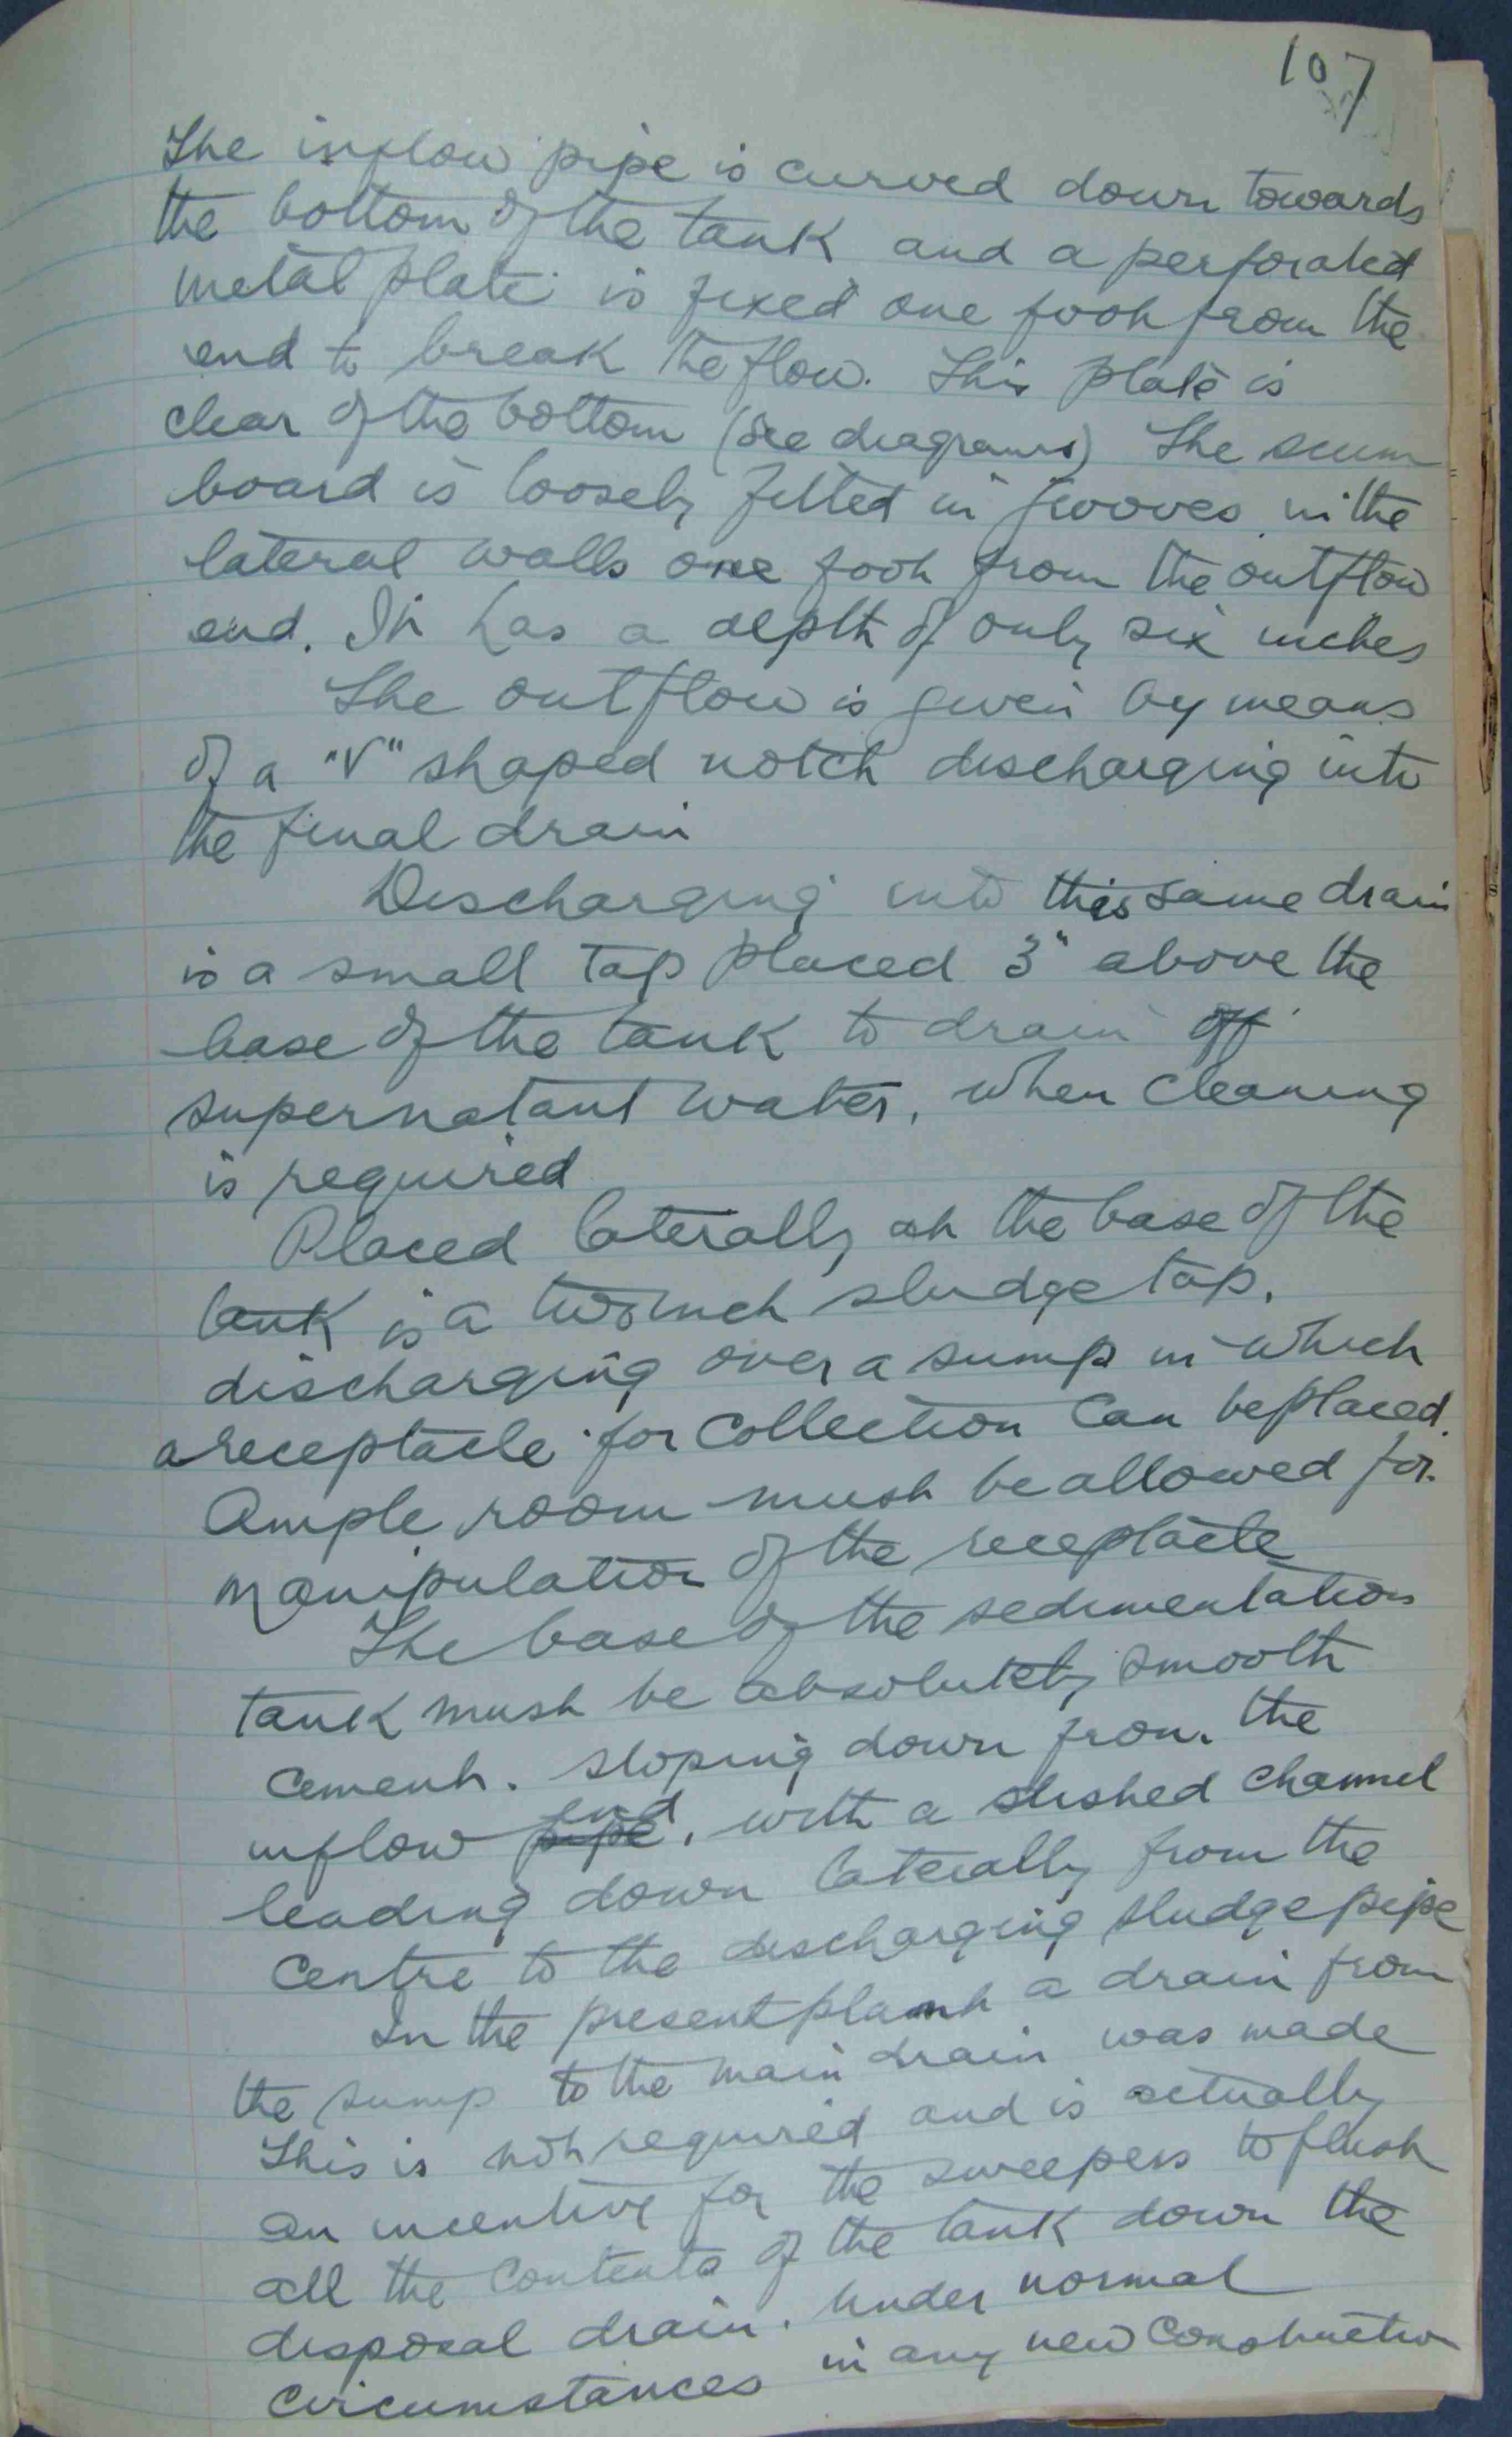 107
The inflow pipe is curved down towards
the bottom of the tank and a perforated
metal plate is fixed one foot from the
end to break the flow. This plate is
clear of the bottom (see diagrams) The scum
board is loosely fitted in grooves in the
lateral walls one foot from the outflow
end. It has a depth of only six inches
The outflow is given by means
of a "V" shaped notch discharging into
the final drain
Discharging into this same drain
is a small tap placed 3" above the
base of the tank to drain off
supernatant water, when cleaning
is required
Placed laterally at the base of the
tank is a two inch sludge tap,
discharging over a sump in which
a receptacle for collection can be placed.
Ample room must be allowed for
manipulation of the receptacle
The base of the sedimentation
tank must be absolutely smooth
cement. sloping down from the
inflow pipe end, with a dished channel
leading down laterally from the
centre to the discharging sludge pipe
In the present plant a drain from
the sump to the main drain was made
This is not required and is actually
an incentive for the sweepers to flush
all the contents of the tank down the
disposal drain. Under normal
circumstances in any new construction